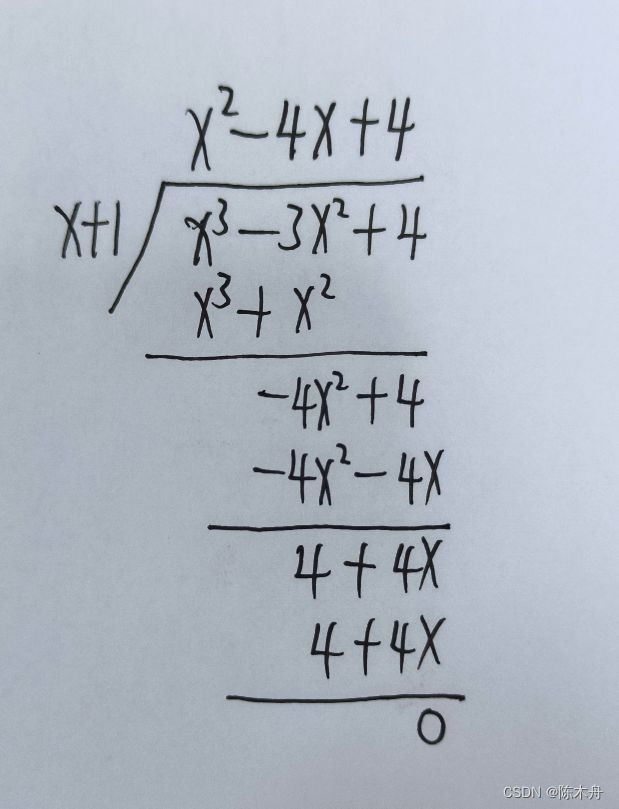 x²-4x+4
x+1 x³-3x²+4
x³+x²
-4x²+4
-4x²-4x
4+4x
4+4x
0
CSDN @陈木舟